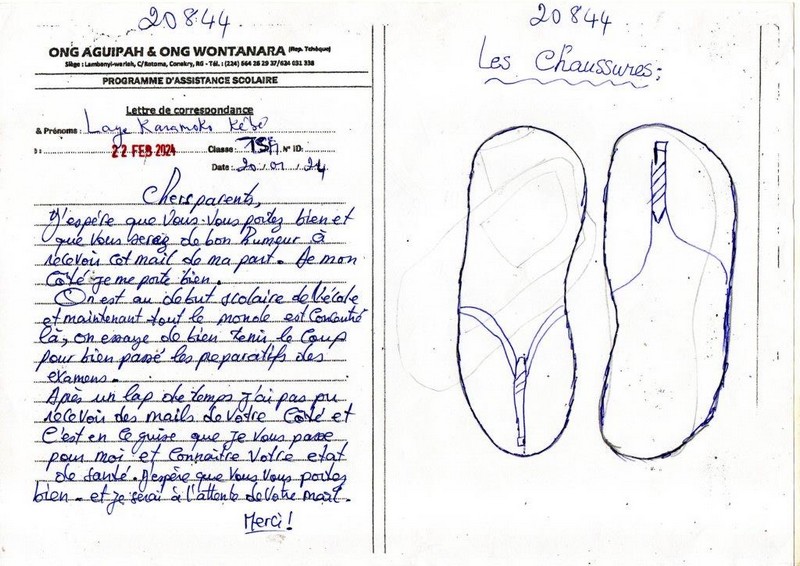 20844
ONG AGUIPAH & ONG WONTANARA (Rep. Tchèque)
Siège : Lambanyi-warish, C/Ratoma, Conakry, RG - Tél. : (224) 664 26 29 37/624 031 338
PROGRAMME D'ASSISTANCE SCOLAIRE
Lettre de correspondance
& Prénoms : Laye Karamoko Kébé
22 FEB 2024 Classe : N° ID:
Date : 20/01/24
Chers parents,
J'espère que vous vous portez bien et
que vous serez de bon humeur à
recevoir cet mail de ma part. De mon
Côté je me porte bien.
On est au debut scolaire de l'école
et maintenant tout le monde est concentré
là, on essaye de bien tenir le coup
pour bien passé les preparatifs des
examens.
Après un lap de temps j'ai pas pu
recevoir des mails de votre Côté et
C'est en ce guise que je vous passe
pour moi et connaître votre etat
de santé. J'espère que vous vous portez
bien - et je serai à l'attente de votre mail.
Merci !
20844
Les Chaussures: